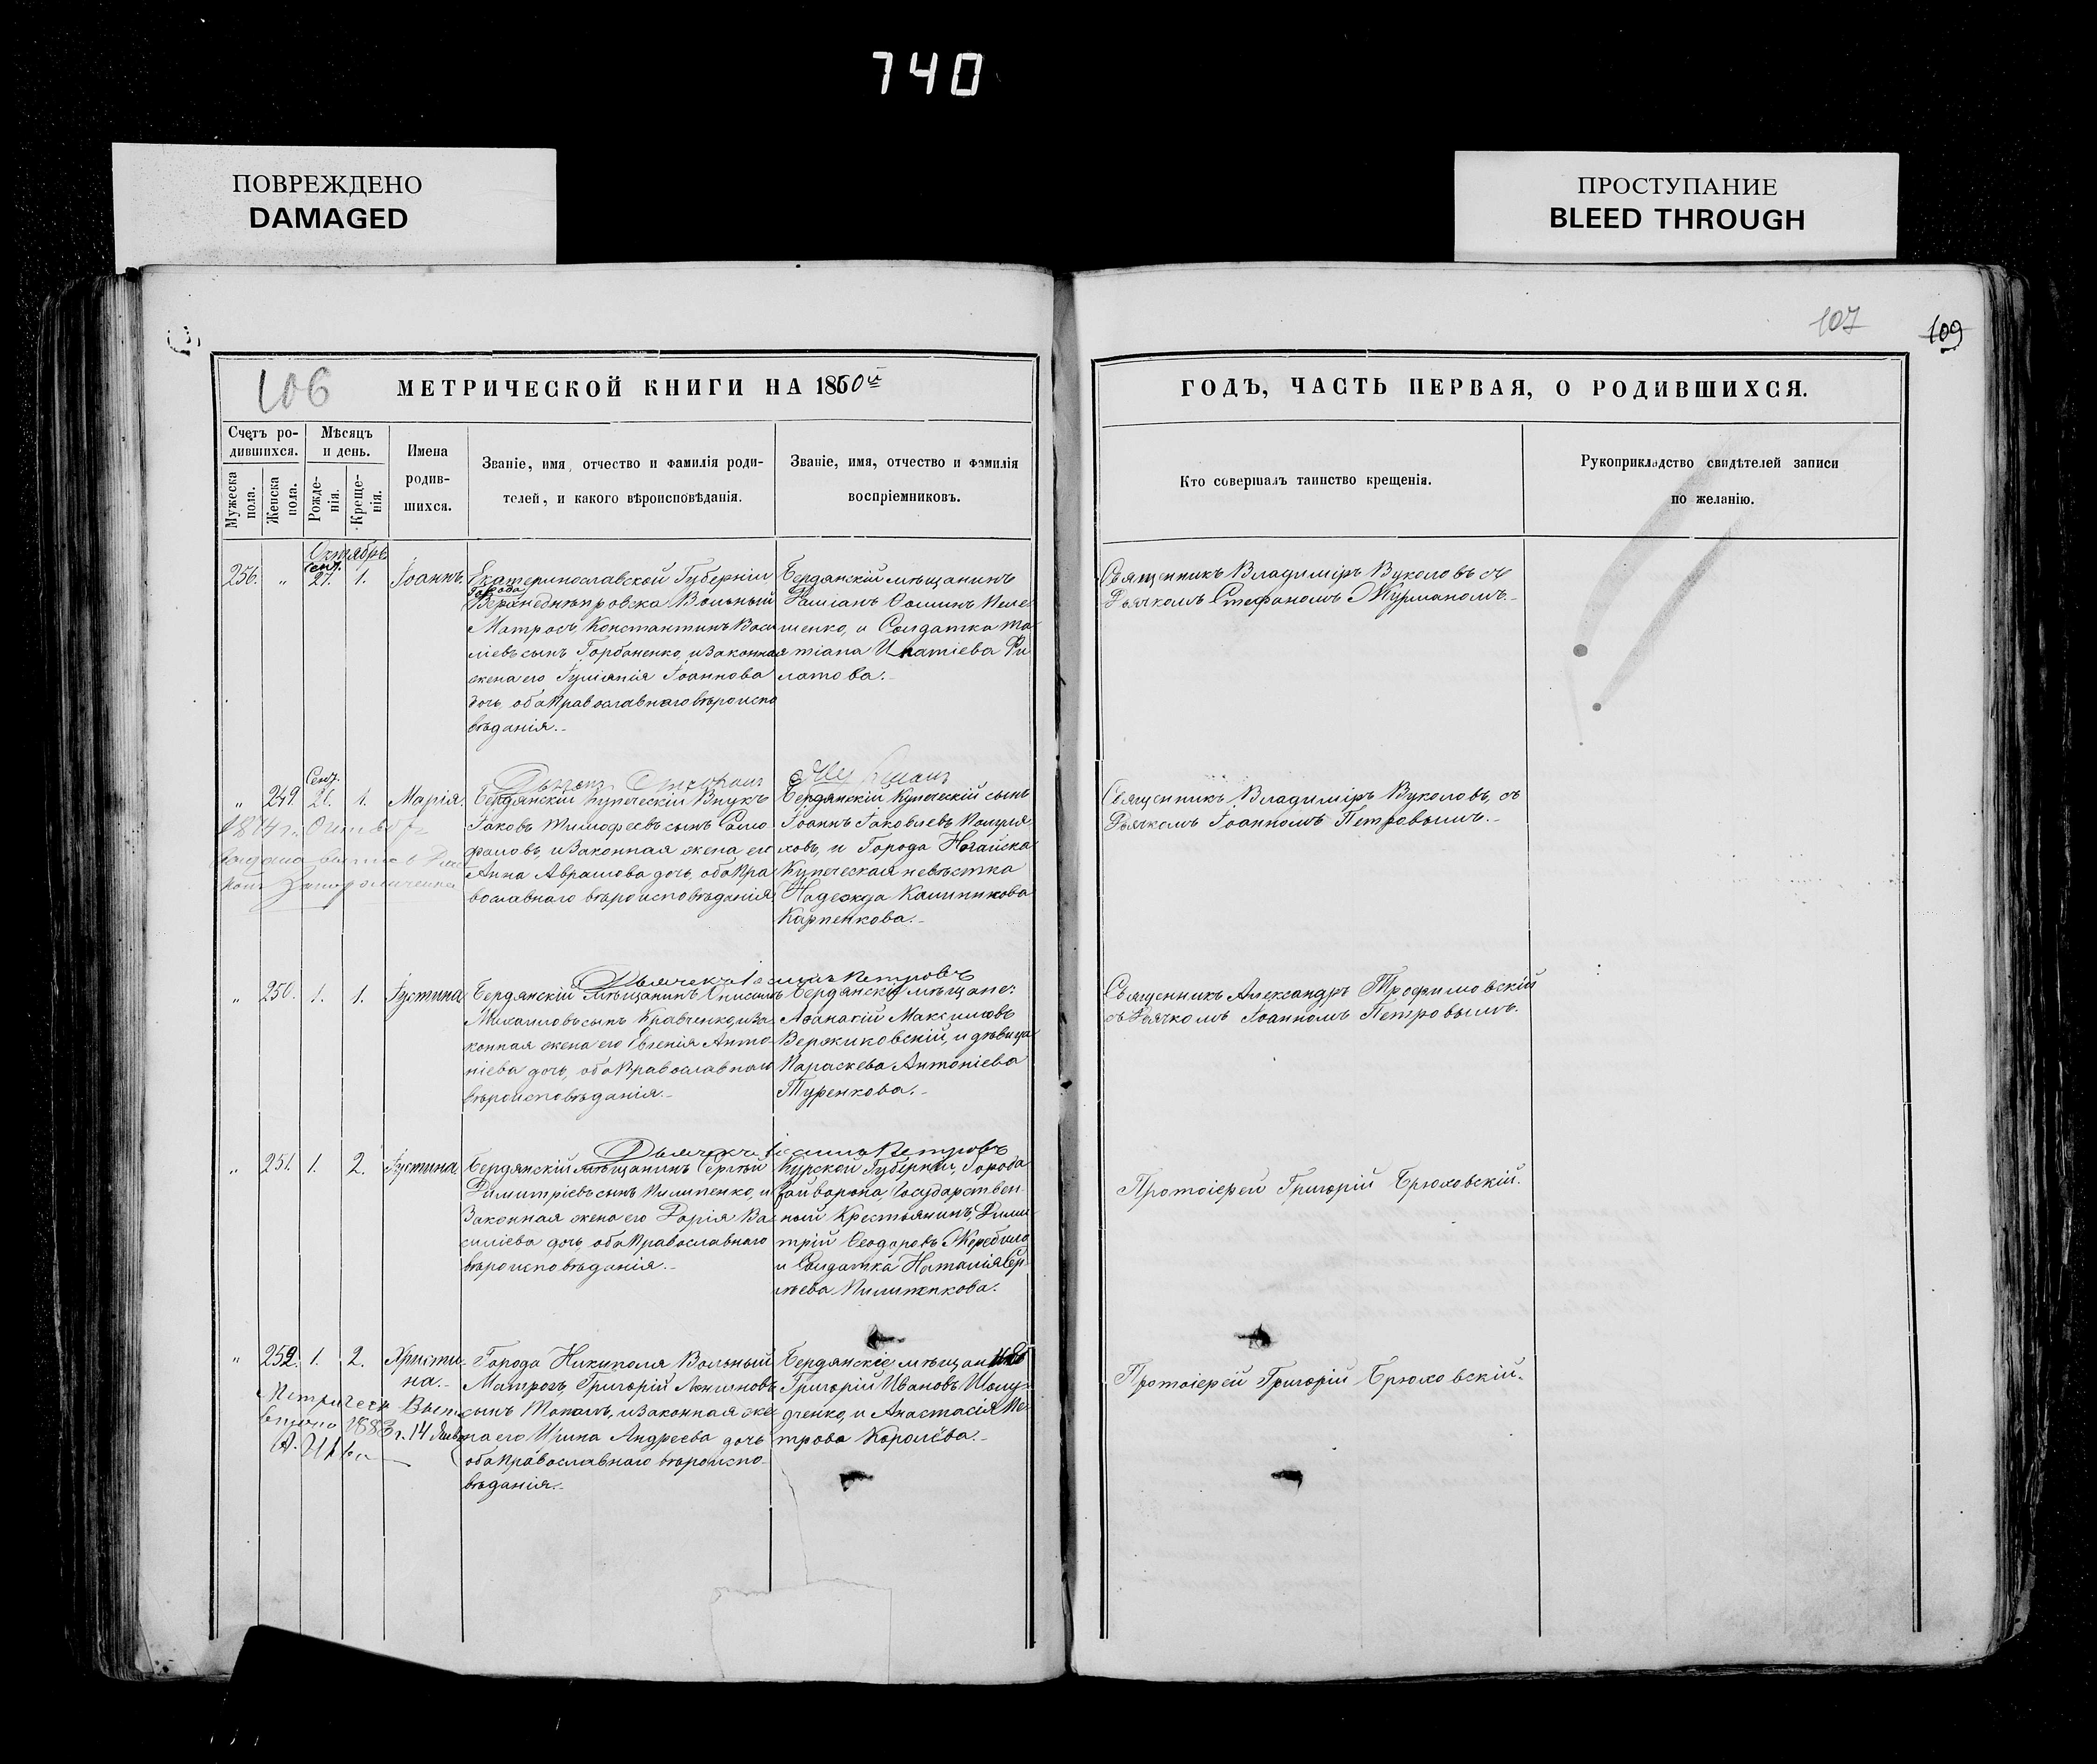 740
ПОВРЕЖДЕНО
DAMAGED
ПРОСТУПАНИЕ
BLEED THROUGH
107
109
106
МЕТРИЧЕСКОЙ КНИГИ НА 1860й
ГОДЪ, ЧАСТЬ ПЕРВАЯ, О РОДИВШИХСЯ.
Счетъ ро-
дившихся.
Мѣсяцъ
и день.
Мужеска
пола.
Женска
пола.
Рожде-
нія.
Креще-
нія.
Имена
родив-
шихся.
Званіе, имя, отчество и фамилія роди-
телей, и какого вѣроисповѣданія.
Званіе, имя, отчество и фамилія
воспріемниковъ.
Кто совершалъ таинство крещенія.
Рукоприкладство свидѣтелей записи
по желанію.
Октябрь
256. " Сент. 27. 1. Іоаннъ.
Екатеринославской Губерніи
Города
Верхнеднѣпровска Вольный
Матросъ, Константинъ Васи
ліевъ сынъ Горбаненко, и законная
жена его Іуліанія Іоаннова
дочь, оба православнаго вѣроиспо
вѣданія.
Бердянскій мѣщанинъ
Даміанъ
шенко, и Солдатка Та
тіана Игнатіева Фи
латова.
Священникъ Владиміръ Вуколовъ съ
Дьячкомъ Стефаномъ Журманомъ.
Дьячекъ Стефанъ Журманъ
" 249. Сент. 21. 1. Марія.
Бердянскій купеческій Внукъ
Іаковъ Тимофеевъ сынъ
и законная жена его
Анна Аврамова дочь, оба пра
вославнаго вѣроисповѣданія.
Бердянскій купеческій сынъ
Іоаннъ Іаковлевъ
ховъ, и Города Ногайска
Купеческая невѣстка
Надежда Калинникова
Карпенкова.
1874 г. Октября
Священникъ Владиміръ Вуколовъ, съ
Дьячкомъ Іоанномъ Петровымъ.
Дьячекъ Іоаннъ Петровъ
" 250. 1. 1. Іустина
Бердянскій мѣщанинъ Онисимъ
Михаиловъ сынъ Кравченко, и за
конная жена его Евгенія Анто
ніева дочь, оба православнаго
вѣроисповѣданія.
Бердянскіе мѣщане:
Афанасій Максимовъ
Вержиковскій, и дѣвица
Параскева Антоніева
Туренкова.
Священникъ Александръ Трофимовскій
съ Дьячкомъ Іоанномъ Петровымъ.
Дьячекъ Іоаннъ Петровъ
" 251. 1. 2. Іустина
Бердянскій мѣщанинъ Сергѣй
Димитріевъ сынъ Пилипенко, и
Законная жена его Дарія Ва
силіева дочь, оба православнаго
вѣроисповѣданія.
Курской Губерніи, Города
Грайворона, Государствен
ный Крестьянинъ, Дими
трій Феодоровъ Жеребило
и Солдатка Наталія Сер
гѣева Пилипенкова.
Протоіерей Григорій Брюховскій.
" 252. 1. 2. Христи
на.
Города Никополя Вольный
Матросъ, Григорій Логгиновъ
сынъ и законная же
на его Ирина Андреева дочь
оба православнаго вѣроиспо
вѣданія.
Бердянскіе мѣщане
Григорій Ивановъ
дченко, и Анастасія Пе
трова Королёва.
1883 г. 14
Протоіерей Григорій Брюховскій.